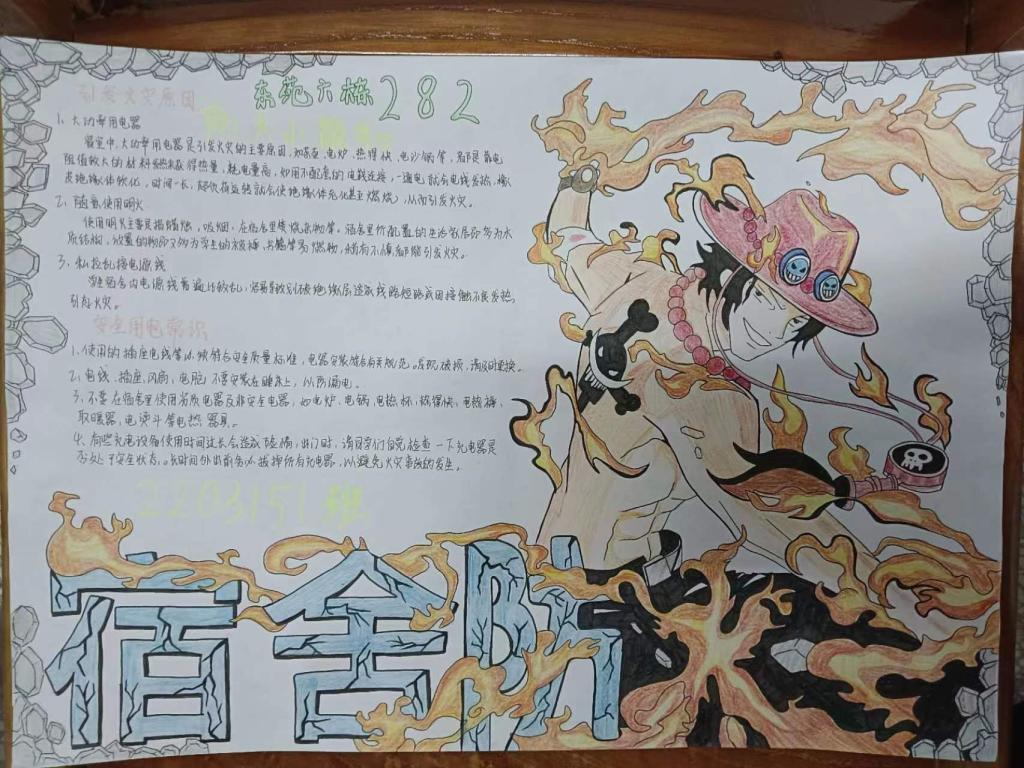 东苑六栋282
引发火灾原因
1、大功率用电器
寝室中,大功率用电器是引发火灾的主要原因,如电炉、热得快、电沙锅等,都是靠电
阻值较大的材料发热来获得热量,耗电量高,如用不配套的电线连接,一通电就会电线发热、橡
皮绝缘体软化,时间一长,超负荷运转就会使绝缘体老化甚至燃烧,从而引发火灾。
2、随意使用明火
使用明火主要是指蜡烛,吸烟,在宿舍里焚烧杂物等。宿舍里所配置的生活家居即多为木
质结构,放置的物即又多为学生的被褥、书籍等易燃物,稍有不慎都能引发火灾。
3、私拉乱接电源线
学生宿舍内电源线普遍比较乱,容易导致划破绝缘层造成线路短路或因接触不良发热,
引起火灾。
安全用电常识
1、使用的插座电线等必须符合安全质量标准,电器安装应有关规范。发现破损,请及时更换。
2、电线、插座、风扇、电脑不要安装在睡床上,以防漏电。
3、不要在宿舍里使用劣质电器及非安全电器,如电炉、电锅、电热杯、热得快、电线棒、
取暖器、电熨斗等电热器具。
4、有些充电设备使用时间过长会造成隐患,出门时,请同学们自觉检查一下充电器是
否处于安全状态。长时间外出前务必拔掉所有充电器,以避免火灾事故的发生。
2203151班
宿舍防火